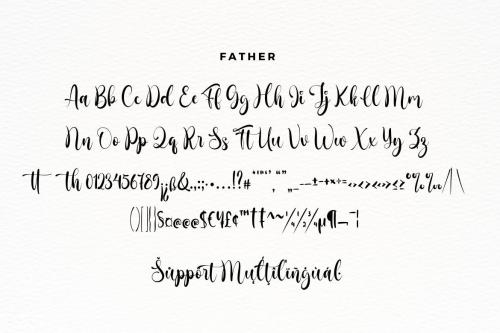 FATHER
Aa Bb Cc Dd Ee Ff Gg Hh Ii Jj Kk Ll Mm
Nn Oo Pp Qq Rr Ss Tt Uu Vv Ww Xx Yy Zz
tt th 0123456789¡¿ß&.,:;·•…!?#''"‚""„_–—±−+×÷=‹›<>«»≤≥°%‰/|\
()[]{}§a@®©$€¥£¢™†‡^~¼½¾µ¶¬¦
Šùppórt Mụļtilingùàl